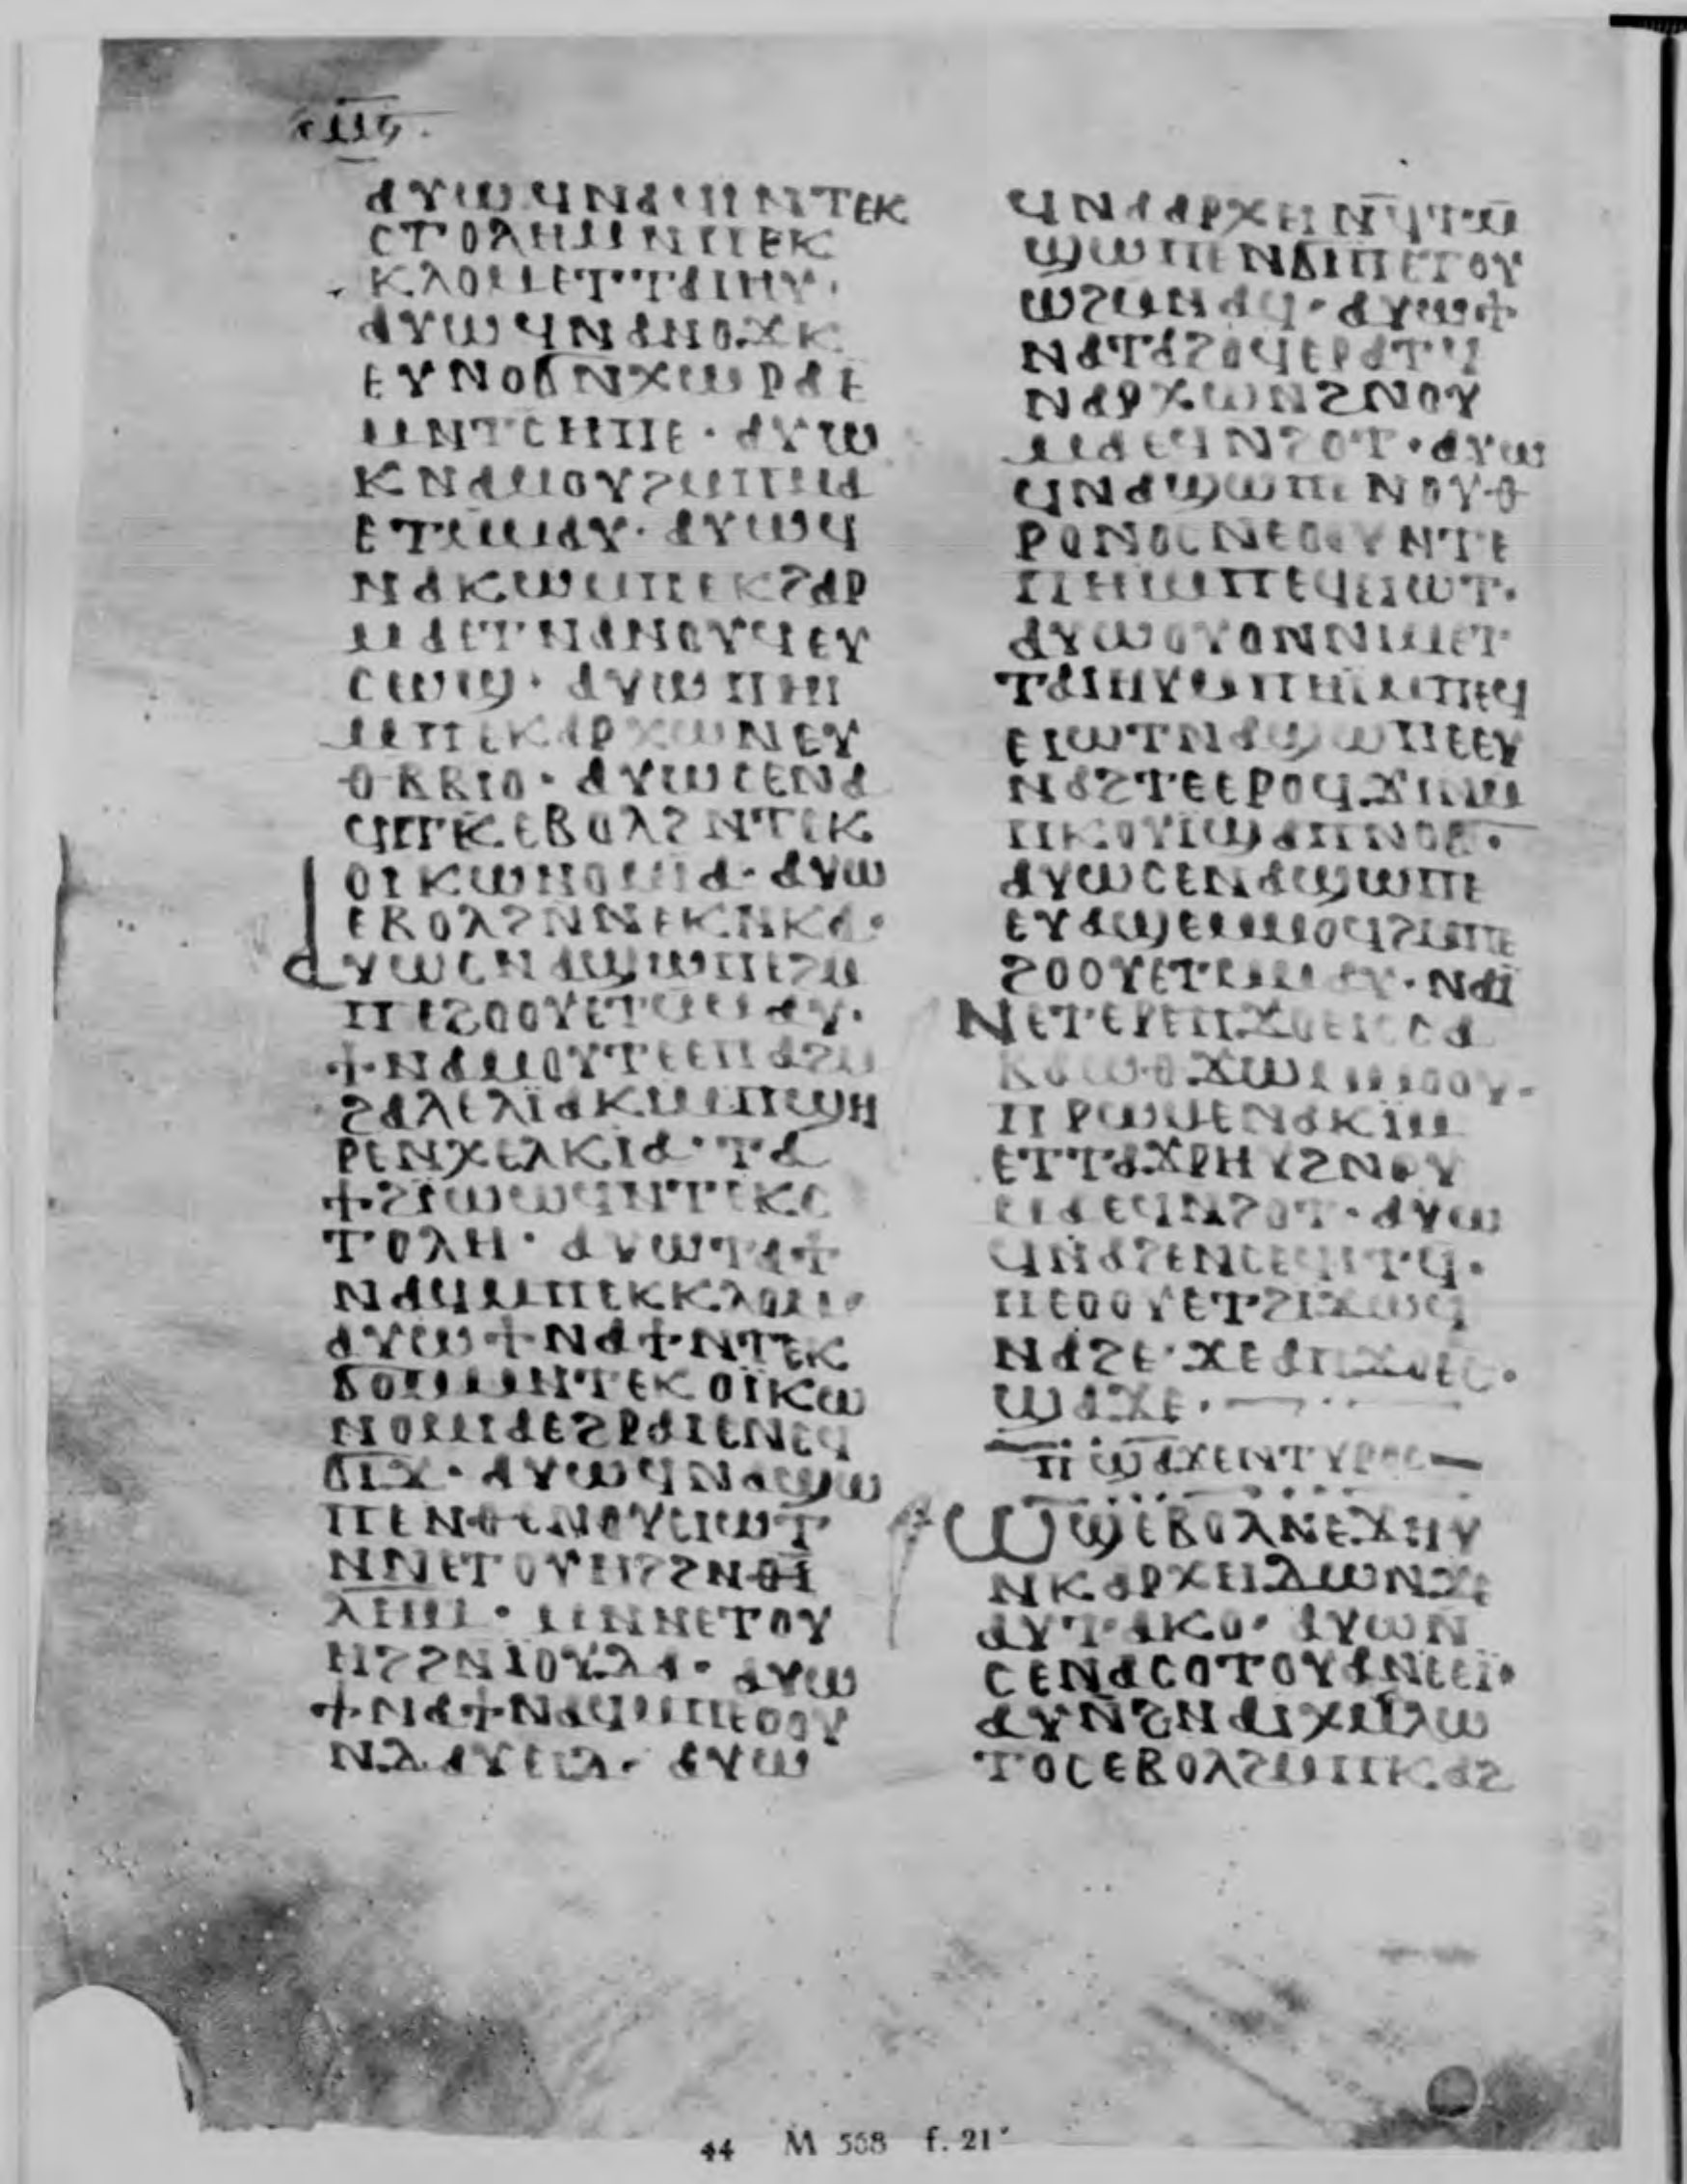 ⲁⲩⲱϥⲛⲁϥⲓⲛⲧⲉⲕ
ⲥⲧⲟⲗⲏⲙⲛⲡⲉⲕ
ⲕⲗⲟⲙⲉⲧⲧⲁⲓⲏⲩ·
ⲁⲩⲱϥⲛⲁⲛⲟϫⲕ
ⲉⲩⲛⲟϭⲛⲭⲱⲣⲁⲉ
ⲙⲛⲧⲥⲏⲡⲉ· ⲁⲩⲱ
ⲕⲛⲁⲙⲟⲩϩⲙⲡⲙⲁ
ⲉⲧⲙⲙⲁⲩ· ⲁⲩⲱϥ
ⲛⲁⲕⲱⲙⲡⲉⲕϩⲁⲣ
ⲙⲁⲉⲧⲛⲁⲛⲟⲩϥⲉⲩ
ⲥⲱϣ· ⲁⲩⲱⲡⲏⲓ
ⲙⲡⲉⲕⲁⲣⲭⲱⲛⲉⲩ
ⲑⲃⲃⲓⲟ· ⲁⲩⲱⲥⲉⲛⲁ
ϥⲓⲧⲕⲉⲃⲟⲗϩⲛⲧⲉⲕ
ⲟⲓⲕⲱⲛⲟⲙⲓⲁ· ⲁⲩⲱ
ⲉⲃⲟⲗϩⲛⲛⲉⲕⲛⲕⲁ·
ⲁⲩⲱⲥⲛⲁϣⲱⲡⲉϩⲙ
ⲡⲉϩⲟⲟⲩⲉⲧⲙⲙⲁⲩ·
ϯⲛⲁⲙⲟⲩⲧⲉⲉⲡⲁϩⲙ
ϩⲁⲗⲉⲗⲓ̈ⲁⲕⲓⲙⲡϣⲏ
ⲣⲉⲛⲭⲉⲗⲕⲓⲁ· ⲧⲁ
ϯϩⲓⲱⲱϥⲛⲧⲉⲕⲥ
ⲧⲟⲗⲏ· ⲁⲩⲱⲧⲁϯ
ⲛⲁϥⲙⲡⲉⲕⲕⲗⲟⲙ·
ⲁⲩⲱϯⲛⲁϯⲛⲧⲉⲕ
ϭⲟⲙⲙⲛⲧⲉⲕⲟⲓ̈ⲕⲱ
ⲛⲟⲙⲓⲁⲉϩⲣⲁⲓⲉⲛⲉϥ
ϭⲓϫ· ⲁⲩⲱϥⲛⲁϣⲱ
ⲡⲉⲛⲑⲉⲛⲟⲩⲉⲓⲱⲧ
ⲛⲛⲉⲧⲟⲩⲏϩϩⲛⲑⲓ
ⲗⲏⲙ· ⲙⲛⲛⲉⲧⲟⲩ
ⲏϩϩⲛⲓⲟⲩⲇⲁ· ⲁⲩⲱ
ϯⲛⲁϯⲛⲁϥⲙⲡⲉⲟⲟⲩ
ⲛⲇⲁⲩⲉⲓⲇ· ⲁⲩⲱ
ϥⲛⲁⲁⲣⲭⲏⲛϥⲧⲙ
ϣⲱⲡⲉⲛϭⲓⲡⲉⲧⲟⲩ
ⲱϩⲙⲛⲁϥ· ⲁⲩⲱϯ
ⲛⲁⲧⲁϩⲟϥⲉⲣⲁⲧϥ
ⲛⲁⲣⲭⲱⲛϩⲛⲟⲩ
ⲙⲁⲉϥⲛϩⲟⲧ· ⲁⲩⲱ
ϥⲛⲁϣⲱⲡⲉⲛⲟⲩⲑ
ⲣⲟⲛⲟⲥⲛⲉⲟⲟⲩⲛⲧⲉ
ⲡⲏⲓⲙⲡⲉϥⲉⲓⲱⲧ·
ⲁⲩⲱⲟⲩⲟⲛⲛⲓⲙⲉⲧ
ⲧⲁⲓⲏⲩϩⲙⲡⲏⲓ̈ⲙⲡⲉϥ
ⲉⲓⲱⲧⲛⲁϣⲱⲡⲉⲉⲩ
ⲛⲁϩⲧⲉⲉⲣⲟϥϫⲓⲛⲙ
ⲡⲕⲟⲩⲓ̈ϣⲁⲡⲛⲟϭ·
ⲁⲩⲱⲥⲉⲛⲁϣⲱⲡⲉ
ⲉⲩⲁϣⲉⲙⲙⲟϥϩⲙⲡⲉ
ϩⲟⲟⲩⲉⲧⲙⲙⲁⲩ· ⲛⲁⲓ̈
ⲛⲉⲧⲉⲣⲉⲡϫⲟⲉⲓⲥⲥⲁ
ⲃⲁⲱⲑϫⲱⲙⲙⲟⲟⲩ·
ⲡⲣⲱⲙⲉⲛⲁⲕⲓⲙ
ⲉⲧⲧⲁϫⲣⲏⲩϩⲛⲟⲩ
ⲙⲁⲉϥⲛϩⲟⲧ· ⲁⲩⲱ
ϥⲛⲁϩⲉⲛⲥⲉϥⲓⲧϥ·
ⲡⲉⲟⲟⲩⲉⲧϩⲓϫⲱϥ
ⲛⲁϩⲉ· ϫⲉⲁⲡϫⲟⲉⲓⲥ·
ϣⲁϫⲉ·
ⲡϣⲁϫⲉⲛⲧⲩⲣⲟⲥ
ⲱϣⲉⲃⲟⲗⲛⲉϫⲏⲩ
ⲛⲕⲁⲣⲭⲏⲇⲱⲛϫⲉ
ⲁⲩⲧⲁⲕⲟ· ⲁⲩⲱⲛ
ⲥⲉⲛⲁⲥⲟⲧⲟⲩⲁⲛⲉⲉⲓ̈·
ⲁⲩⲛϩⲛⲁⲓⲭⲙⲁⲗⲱ
ⲧⲟⲥⲉⲃⲟⲗϩⲙⲡⲕⲁϩ
44 M 568 f. 21ᵛ